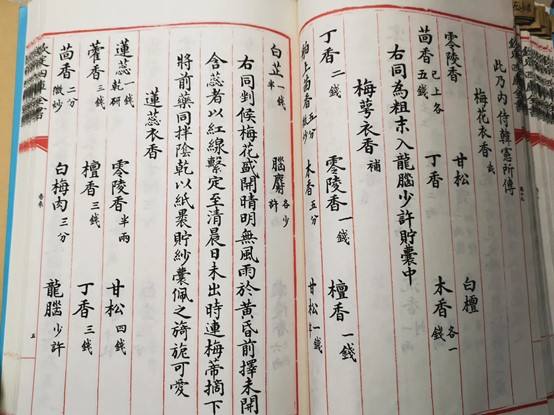 此乃内侍韓憲所傳
梅花衣香 武
零陵香 甘松 白檀
茴香 已上各五錢 丁香 木香 各一錢
右同為粗末入龍腦少許貯囊中
梅萼衣香 補
丁香 二錢 零陵香 一錢 檀香 一錢
舶上茴香 五分微炒 木香 五分 甘松 一錢
白芷 一錢半 腦麝 各少許
右同剉候梅花盛開晴明無風雨於黄昏前擇未開
含蕊者以紅線繫定至清晨日未出時連梅蒂摘下
將前藥同拌陰乾以紙裹貯紗囊佩之旖旎可愛
蓮蕊衣香
蓮蕊 一錢乾研 零陵香 半兩 甘松 四錢
藿香 三錢 檀香 三錢 丁香 三錢
茴香 二分微炒 白梅肉 三分 龍腦 少許
欽定四庫全書
五